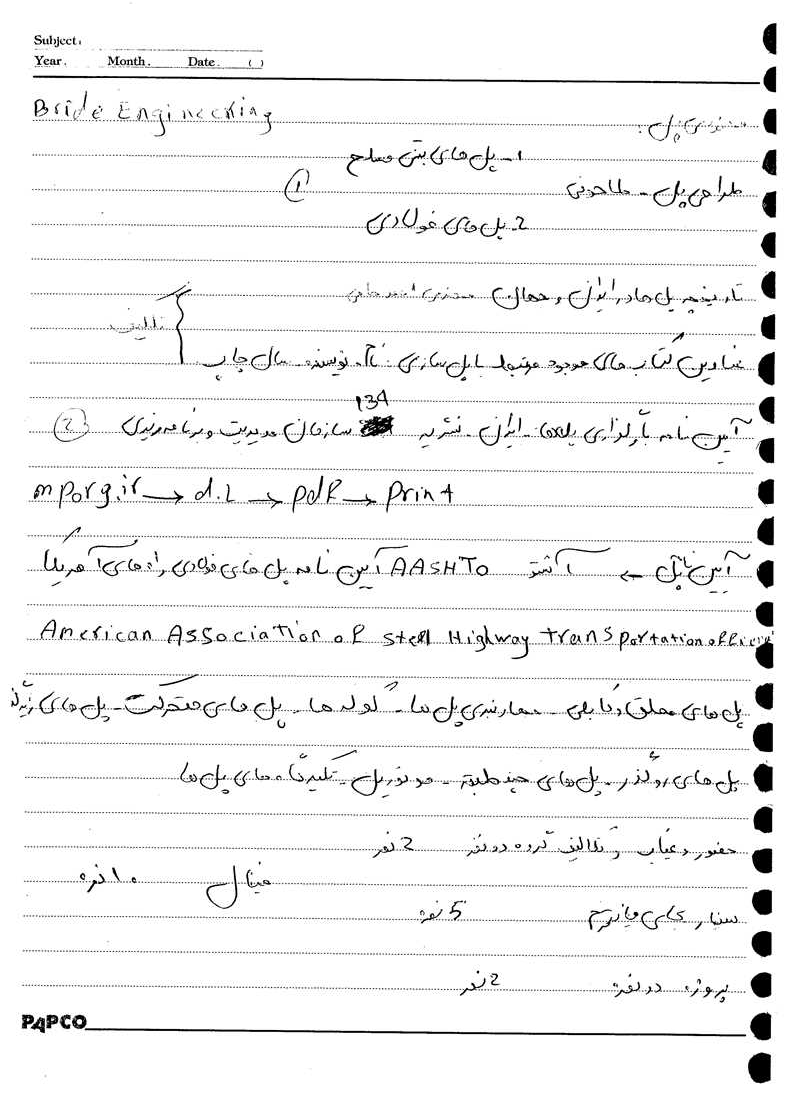 Subject:
Year. Month. Date. ( )
Bride Engineering
مهندسی پل:
1- پل های بتنی مسلح
طراحی پل - طاحونی ①
2- پل های فولادی
تاریخچه پل ها در ایران و جهان
تکالیف
عناوین کتاب های موجود مرتبط با پل سازی: نام، نویسنده، سال چاپ
134
آیین نامه بارگذاری پلها - ایران - نشریه سازمان مدیریت و برنامه ریزی ②
mporg.ir → d.L → pdf → print
آیین نامه پل ← آشتو AASHTO آیین نامه پل های فولادی راه های آمریکا
American Association of Steel Highway transportation
پل های معلق و کابلی - مهاربندی پل ها - کوله ها - پل های متحرک - پل های
پل های روگذر - پل های چند طبقه - مونوریل - تکیه گاه های پل ها
حضور و غیاب و تکالیف گروه دو نفر 2 نمر
فینال 10 نمره
سمینار بجای میانترم 5 نمره
پروژه دو نفره 2 نمر
PAPCO